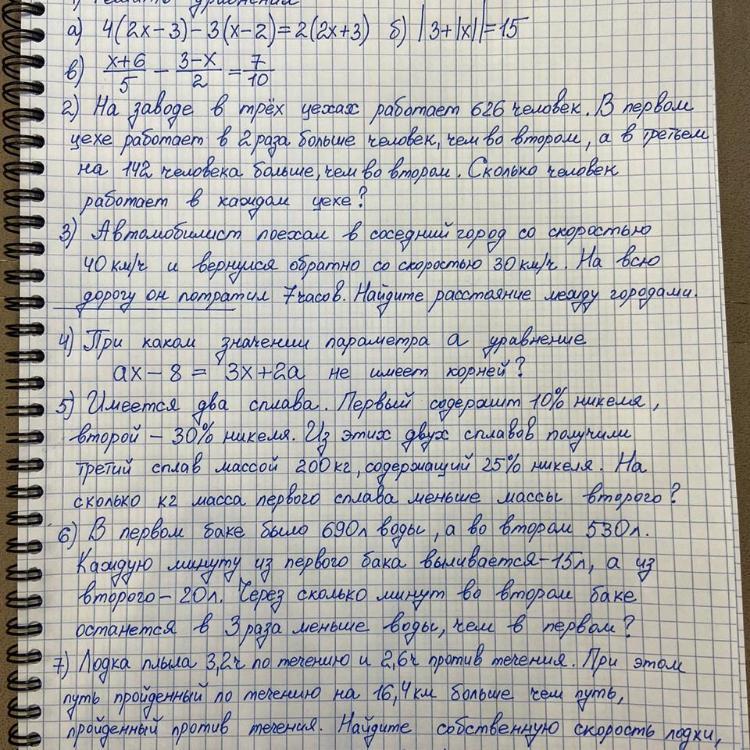 а) 4(2x-3)-3(x-2)=2(2x+3) б) |3+|x||=15
в) (x+6)/5 - (3-x)/2 = 7/10
2) На заводе в трёх цехах работает 626 человек. В первом
цехе работает в 2 раза больше человек, чем во втором, а в третьем
на 142 человека больше, чем во втором. Сколько человек
работает в каждом цехе?
3) Автомобилист поехал в соседний город со скоростью
40 км/ч и вернулся обратно со скоростью 30 км/ч. На всю
дорогу он потратил 7 часов. Найдите расстояние между городами.
4) При каком значении параметра а уравнение
ax-8 = 3x+2a не имеет корней?
5) Имеется два сплава. Первый содержит 10% никеля,
второй - 30% никеля. Из этих двух сплавов получили
третий сплав массой 200 кг, содержащий 25% никеля. На
сколько кг масса первого сплава меньше массы второго?
6) В первом баке было 690 л воды, а во втором 530 л.
Каждую минуту из первого бака выливается-15 л, а из
второго-20 л. Через сколько минут во втором баке
останется в 3 раза меньше воды, чем в первом?
7) Лодка плыла 3,2 ч по течению и 2,6 ч против течения. При этом
путь пройденный по течению на 16,4 км больше чем путь,
пройденный против течения. Найдите собственную скорость лодки,